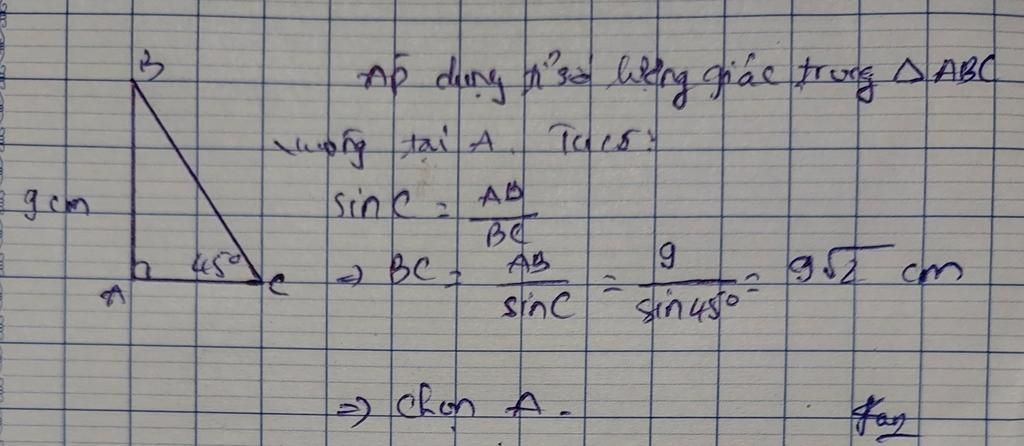 B
Áp dụng tỉ số lượng giác trong △ ABC
vuông tại A. Ta có:
9 cm
sin C = AB/BC
A 45° C
⇒ BC = AB/sin C = 9/sin 45° = 9√2 cm
⇒ Chọn A.